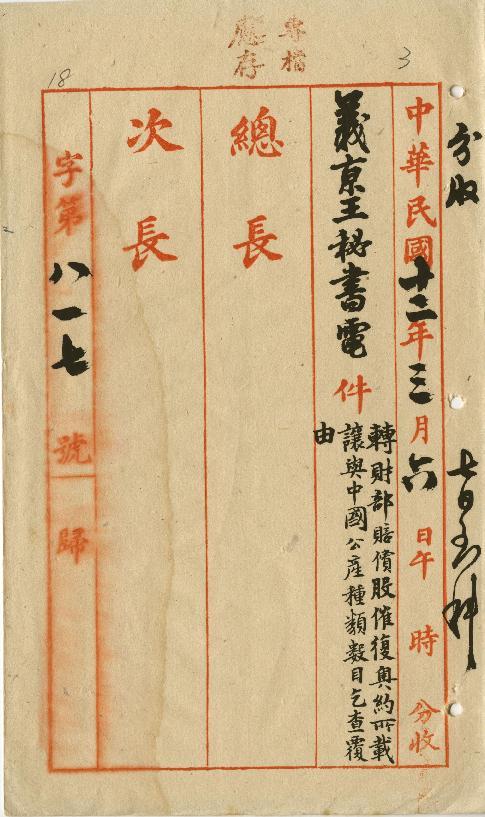 專檔
應存
3
18
分收
七日到科
中華民國十二年三月六日午 時 分收
義京王秘書電 件
轉財部賠償股催復奧約所載
讓與中國公產種類數目乞查覆
由
總長
次長
字第八一七號 歸